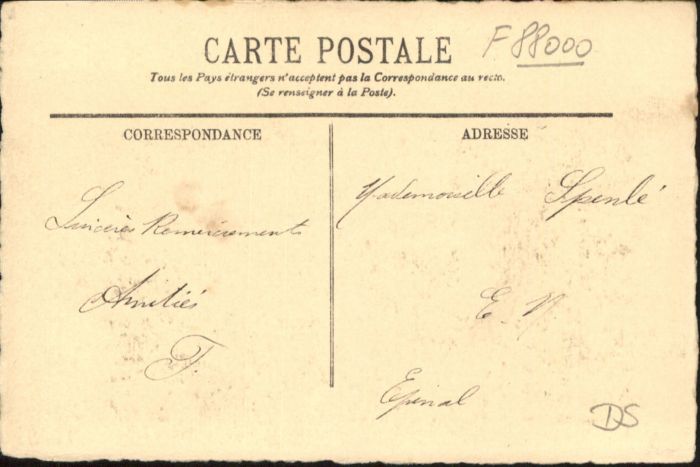 F 88000
CARTE POSTALE
Tous les Pays étrangers n'acceptent pas la Correspondance au recto.
(Se renseigner à la Poste).
CORRESPONDANCE
Sincères Remerciements
Amitiés
F.
ADRESSE
Mademoiselle Spenlé
E. N
Epinal
DS